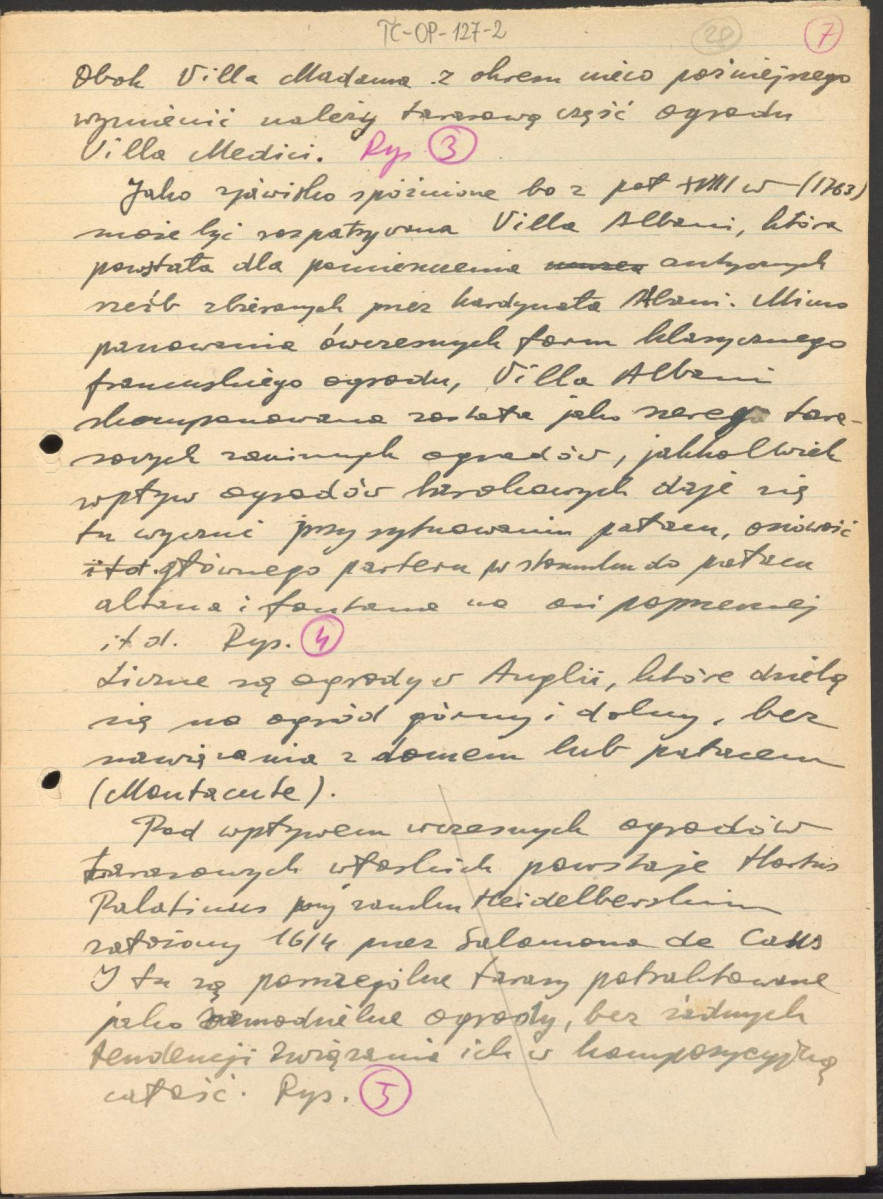 TC-OP-127-2 28 7
Obok Villa Madama z okresu nieco późniejszego
wymienić należy tarasową część ogrodu
Villa Medici. Rys 3
Jako zjawisko spóźnione bo z poł XVIII w (1763)
może być rozpatrywana Villa Albani, która
powstała dla pomieszczenia antycznych
rzeźb zbieranych przez kardynała Albani. Mimo
panowania ówczesnych form klasycznego
francuskiego ogrodu, Villa Albani
skomponowana została jako szereg tara-
sowych zamkniętych ogrodów, jakkolwiek
wpływ ogrodów barokowych daje się
tu wyczuć przy sytuowaniu pałacu, osiowość
itd. głównego parteru w stosunku do pałacu
altana i fontanna na osi poprzecznej
itd. Rys. 4
Liczne są ogrody w Anglii, które dzielą
się na ogród górny i dolny, bez
nawiązania z domem lub pałacem
(Montacute).
Pod wpływem wczesnych ogrodów
tarasowych włoskich powstaje Hortus
Palatinus przy zamku Heidelberskim
założony 1614 przez Salomona de Caus
I tu są poszczególne tarasy potraktowane
jako samodzielne ogrody, bez żadnych
tendencji związania ich w kompozycyjną
całość. Rys. 5